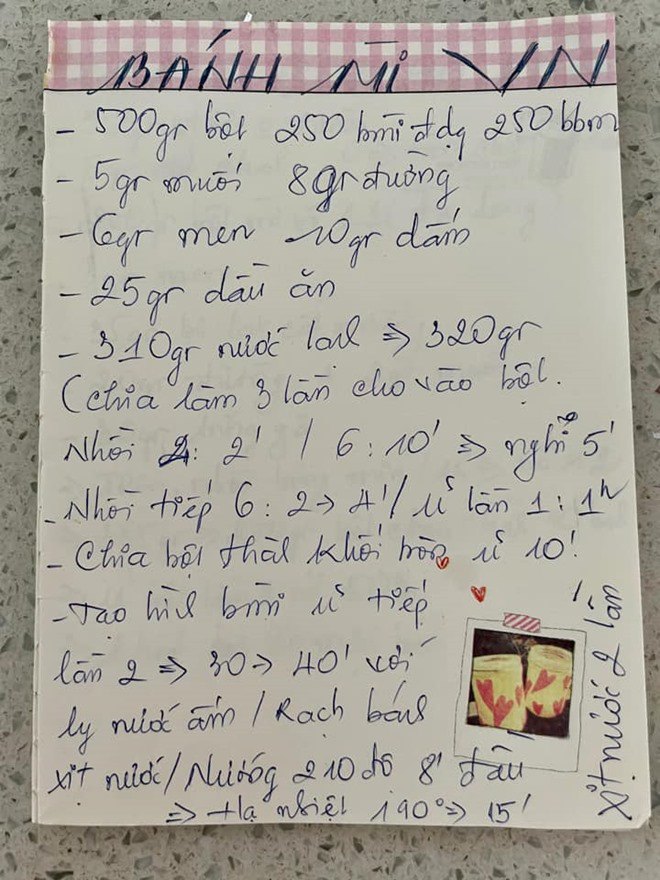 BÁNH MÌ VN
- 500gr bột 250 bmì đdụ 250 bbm
- 5gr muối 8gr đường
- 6gr men 10gr dấm
- 25gr dầu ăn
- 310gr nước lạnh => 320gr
(chia làm 3 lần cho vào bột.
Nhồi 2: 2' / 6: 10' => nghỉ 5'
- Nhồi tiếp 6: 2 -> 4' / ủ lần 1: 1h
- Chia bột thành khối tròn ủ 10'
- Tạo hình bmì ủ tiếp
lần 2 => 30 -> 40' với
ly nước ấm / Rạch bánh
xịt nước / Nướng 210 độ 8' đầu
=> Hạ nhiệt 190° => 15'
xịt nước 2 lần